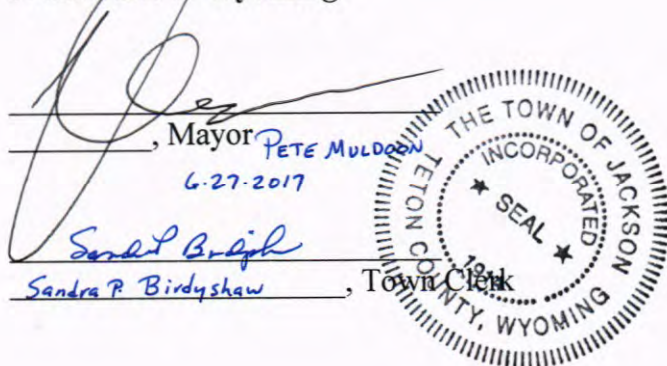 , Mayor PETE MULDOON
6-27-2017
Sandra P. Birdyshaw, Town Clerk
THE TOWN OF JACKSON
TETON COUNTY, WYOMING
INCORPORATED
★ SEAL ★